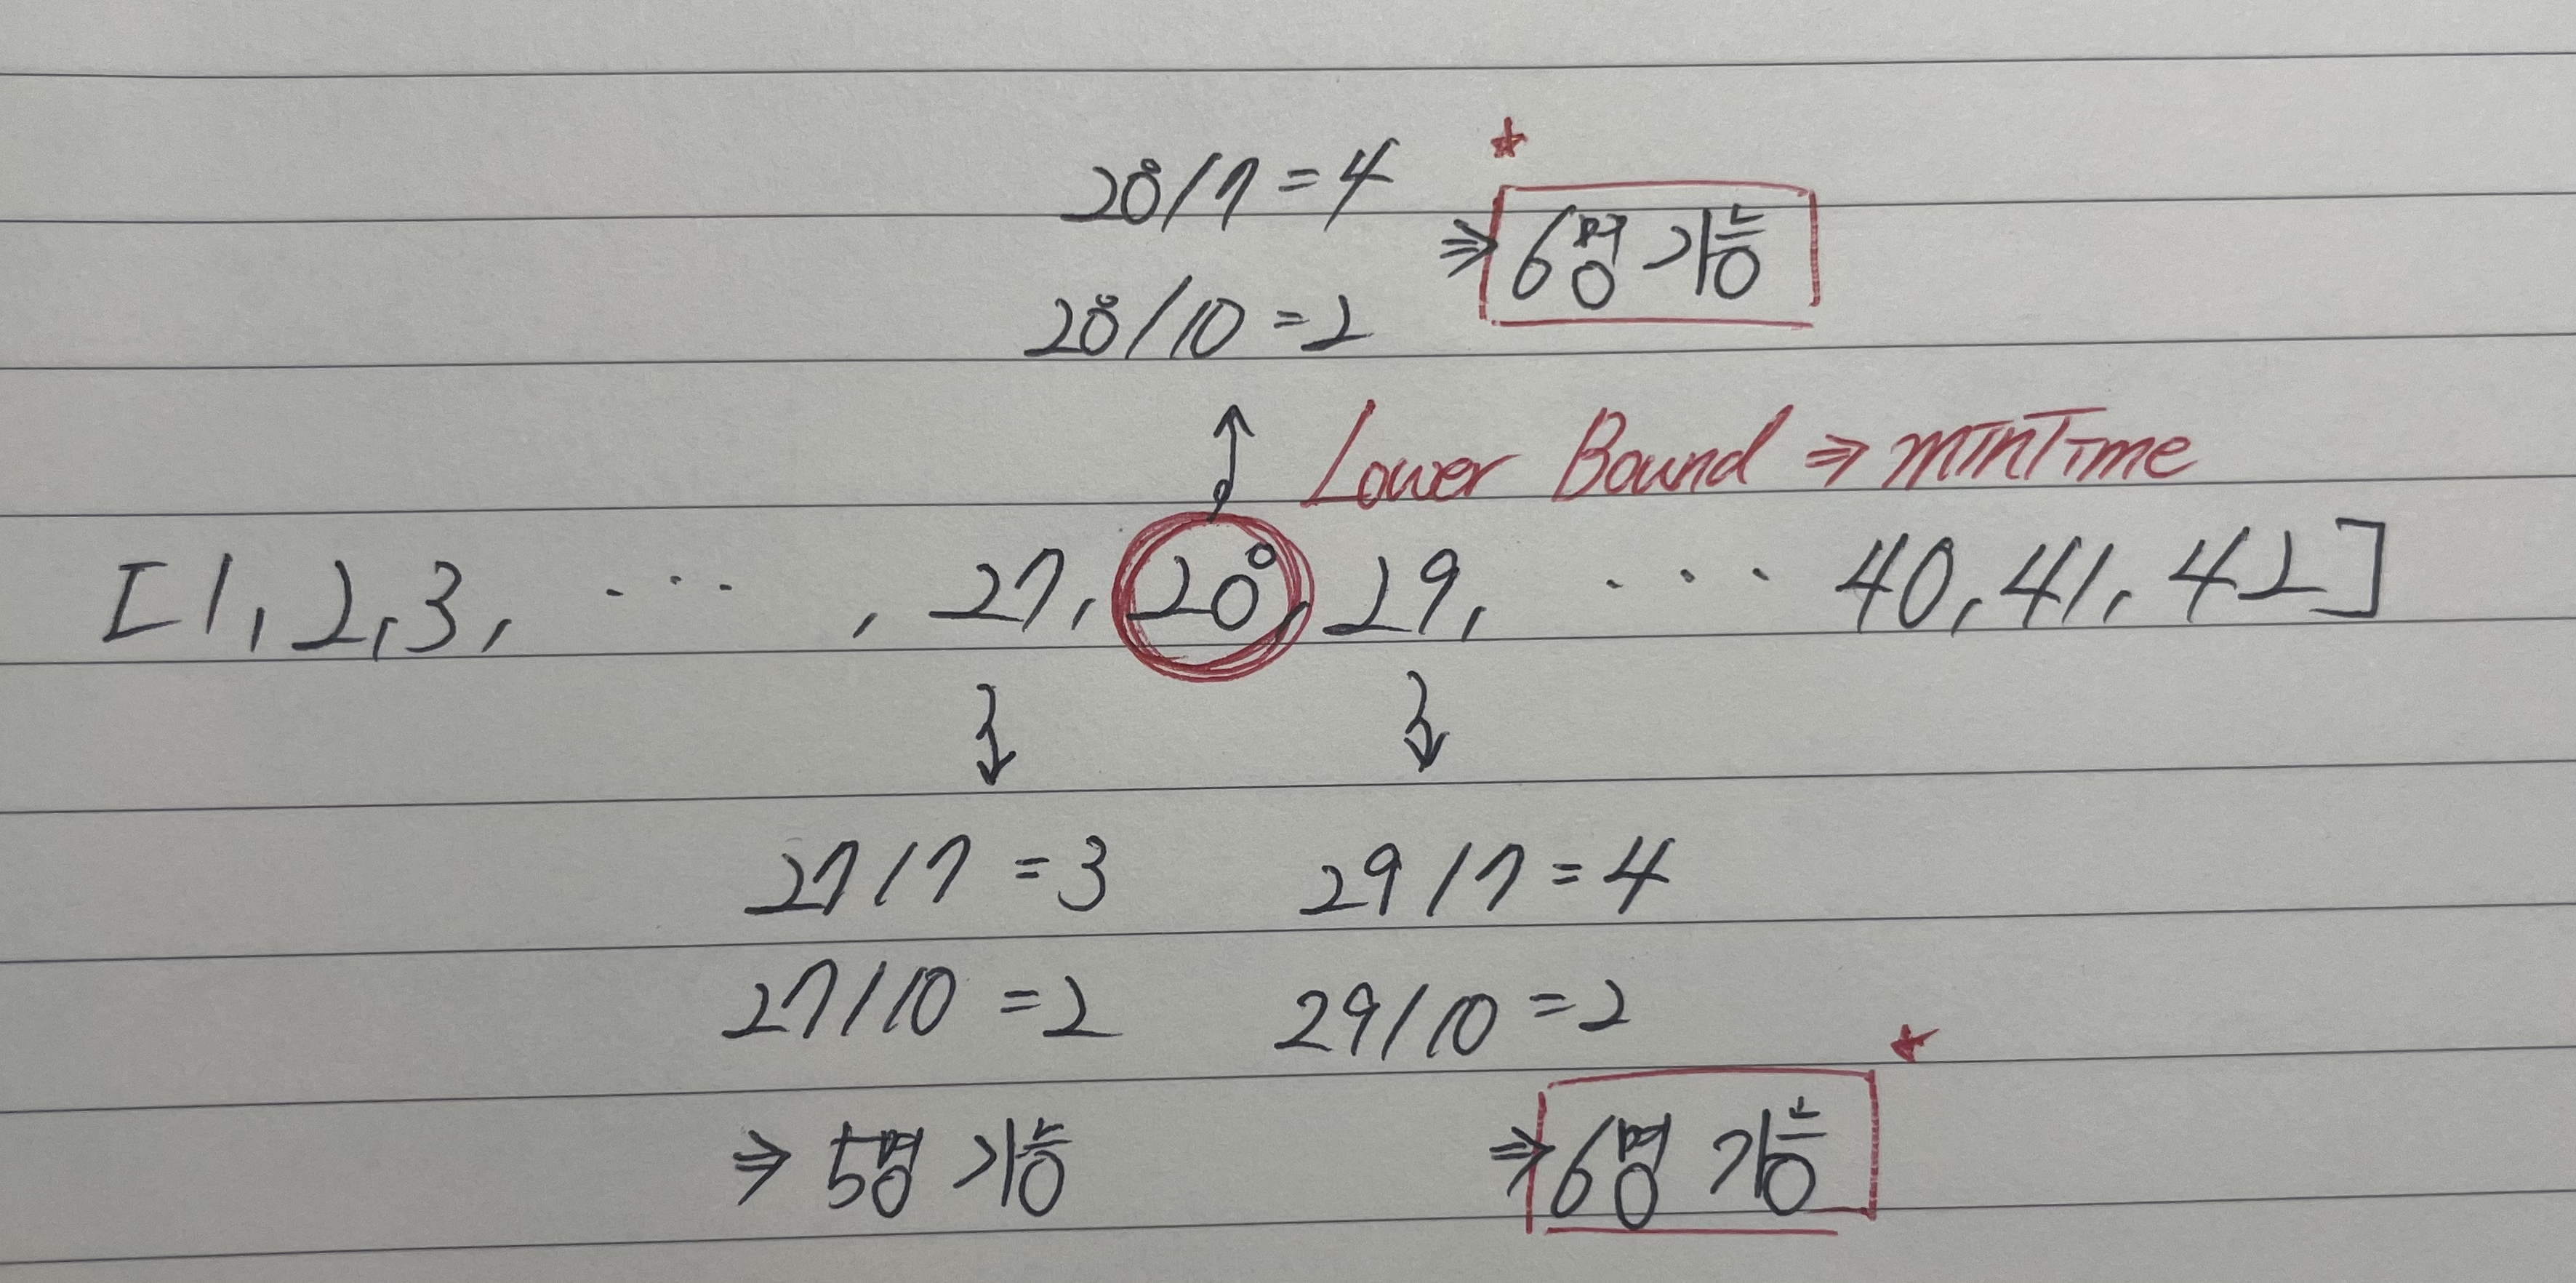 28/7 = 4
⇒ 6명 가능
28/10 = 2
Lower Bound ⇒ minTime
[1, 2, 3, ··· , 27, 28, 29, ··· 40, 41, 42]
27/7 = 3
29/7 = 4
27/10 = 2
29/10 = 2
⇒ 5명 가능
⇒ 6명 가능